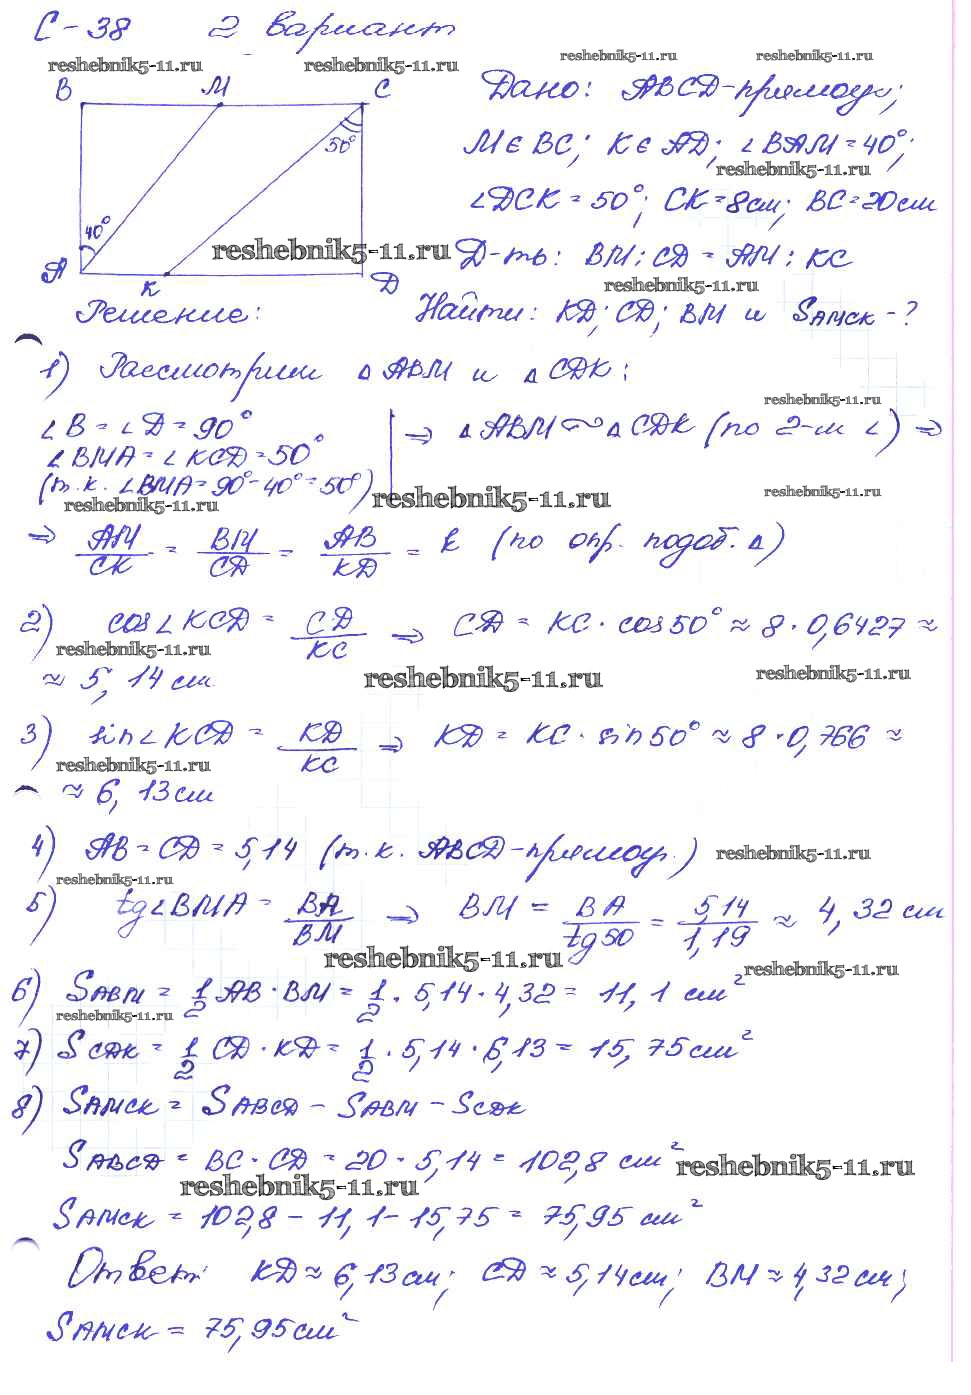 С-38 2 вариант
reshebnik5-11.ru reshebnik5-11.ru reshebnik5-11.ru reshebnik5-11.ru
B M C
50°
40°
A K D
Дано: ABCD-прямоуг;
M ∈ BC; K ∈ AD; ∠BAM = 40°;
reshebnik5-11.ru
∠DCK = 50°; CK = 8см; BC = 20см
reshebnik5-11.ru
Д-ть: BM : CD = AM : KC
reshebnik5-11.ru
Решение: Найти: KD; CD; BM и SAMCK - ?
1) Рассмотрим △ABM и △CDK:
reshebnik5-11.ru
∠B = ∠D = 90° ⇒ △ABM ∾ △CDK (по 2-м ∠) ⇒
∠BMA = ∠KCD = 50°
(т.к. ∠BMA = 90° - 40° = 50°)
reshebnik5-11.ru reshebnik5-11.ru reshebnik5-11.ru
⇒ AM/CK = BM/CD = AB/KD = k (по опр. подоб. △)
2) cos∠KCD = CD/KC ⇒ CD = KC · cos50° ≈ 8 · 0,6427 ≈
reshebnik5-11.ru
≈ 5,14 см
reshebnik5-11.ru reshebnik5-11.ru
3) sin∠KCD = KD/KC ⇒ KD = KC · sin50° ≈ 8 · 0,766 ≈
reshebnik5-11.ru
≈ 6,13 см
4) AB = CD = 5,14 (т.к. ABCD-прямоуг.)
reshebnik5-11.ru
reshebnik5-11.ru
5) tg∠BMA = BA/BM ⇒ BM = BA/tg50 = 5,14/1,19 ≈ 4,32 см
reshebnik5-11.ru reshebnik5-11.ru
6) SABM = 1/2 AB · BM = 1/2 · 5,14 · 4,32 = 11,1 см²
reshebnik5-11.ru
7) SCDK = 1/2 CD · KD = 1/2 · 5,14 · 6,13 = 15,75 см²
8) SAMCK = SABCD - SABM - SCDK
SABCD = BC · CD = 20 · 5,14 = 102,8 см²
reshebnik5-11.ru
reshebnik5-11.ru
SAMCK = 102,8 - 11,1 - 15,75 = 75,95 см²
Ответ: KD ≈ 6,13 см; CD ≈ 5,14 см; BM ≈ 4,32 см;
SAMCK = 75,95 см²